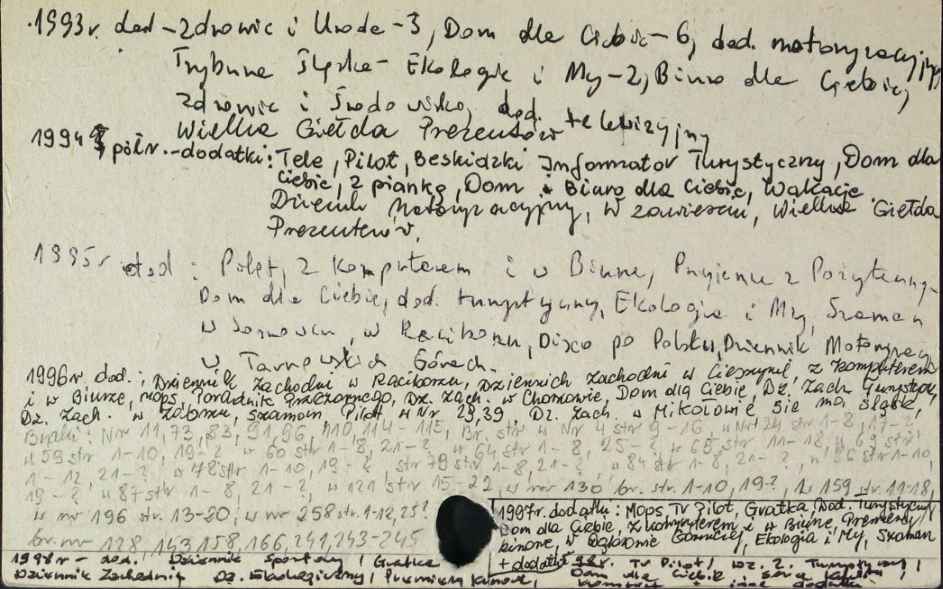 1993r. dod - Zdrowie i Uroda - 3, Dom dla Ciebie - 6, dod. motoryzacyjny,
Trybuna Śląska - Ekologia i My - 2, Biuro dla Ciebie,
Zdrowie i Środowisko, dod. telewizyjny
Wielka Giełda Prezentów
1994 półr. - dodatki: Tele, Pilot, Beskidzki Informator Turystyczny, Dom dla
Ciebie, Z pianką, Dom Biuro dla Ciebie, Wakacje
Dziennik Motoryzacyjny, W zawieszeniu, Wielka Giełda
Prezentów.
1995r dod: Pilot, Z Komputerem i w Biurze, Przyjemne z Pożytecznym
Dom dla Ciebie, dod. turystyczny, Ekologia i My, Szaman
w Sosnowcu, w Raciborzu, Disco po Polsku, Dziennik Motoryzacyjny
w Tarnowskich Górach.
1996r. dod.: Dziennik Zachodni w Raciborzu, Dziennik Zachodni w Cieszynie, Z Komputerem
i w Biurze, Mops, Poradnik Dz. Zach. w Chorzowie, Dom dla Ciebie, Dz. Zach. Turystyczny,
Dz. Zach. w Zabrzu, Szaman Pilot w Nr 29,39, Dz. Zach. w Mikołowie się ma Śląskie,
Braki: Nr 11,73, 83, 91,96, 110, 114-115, Br. str w Nr 4 str 9-16, w Nr 24 str 1-8, 17-?
w 59 str 1-10, 19-? w 60 str 1-8, 21-? w 64 str 1-8, 25-? w 65 str 11-18, w 69 str
1-12, 21-? w 78 str 1-10, 19-? str 79 str 1-8, 21-?, w 84 str 1-8, 21-?, w 86 str 1-10,
19-? w 87 str 1-8, 21-?, w 121 str 15-22, w nr 130 br. str. 1-10, 19-?, w 159 str. 11-18,
w nr 196 str. 13-20, w nr 258 str. 1-12, 25?
br. nr 128, 143, 158, 166, 241, 243-245
1997r. dodatki: Mops, TV Pilot, Gratka, Dod. Turystyczny
Dom dla Ciebie, Z komputerem i w Biurze, Premiery
kinowe, w Dąbrowie Górniczej, Ekologia i My, Szaman
+ dodatki
1998r - dod. Dziennik Sportowy, Gratka
Dziennik Zachodni, Dz. Ekologiczny, Premiera kinowe,
98r. TV Pilot, Dz. Z. Turystyczny,
Dom dla Ciebie
i inne dodatki